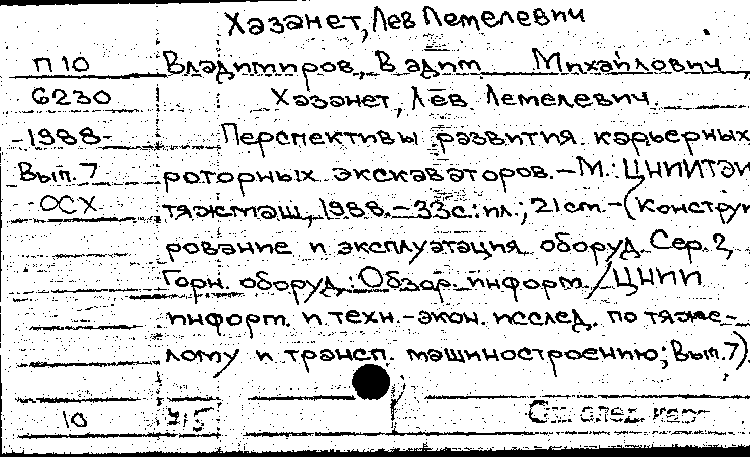 Хазанет, Лев Лемелевич
П 10 Владимиров, Вадим Михайлович,
6230 Хазанет, Лев Лемелевич.
-1988- Перспективы развития карьерных
Вып. 7 роторных экскаваторов.-М.: ЦНИИТЭИ
ОСХ тяжмаш, 1988.-33с.: ил.; 21см-(Конструи
рование и эксплуатация оборуд. Сер. 2,
Горн. оборуд.: Обзор. информ. / ЦНИИ
информ. и техн.-экон. исслед. по тяже-
лому и трансп. машиностроению; Вып. 7).
10 См. след. карт